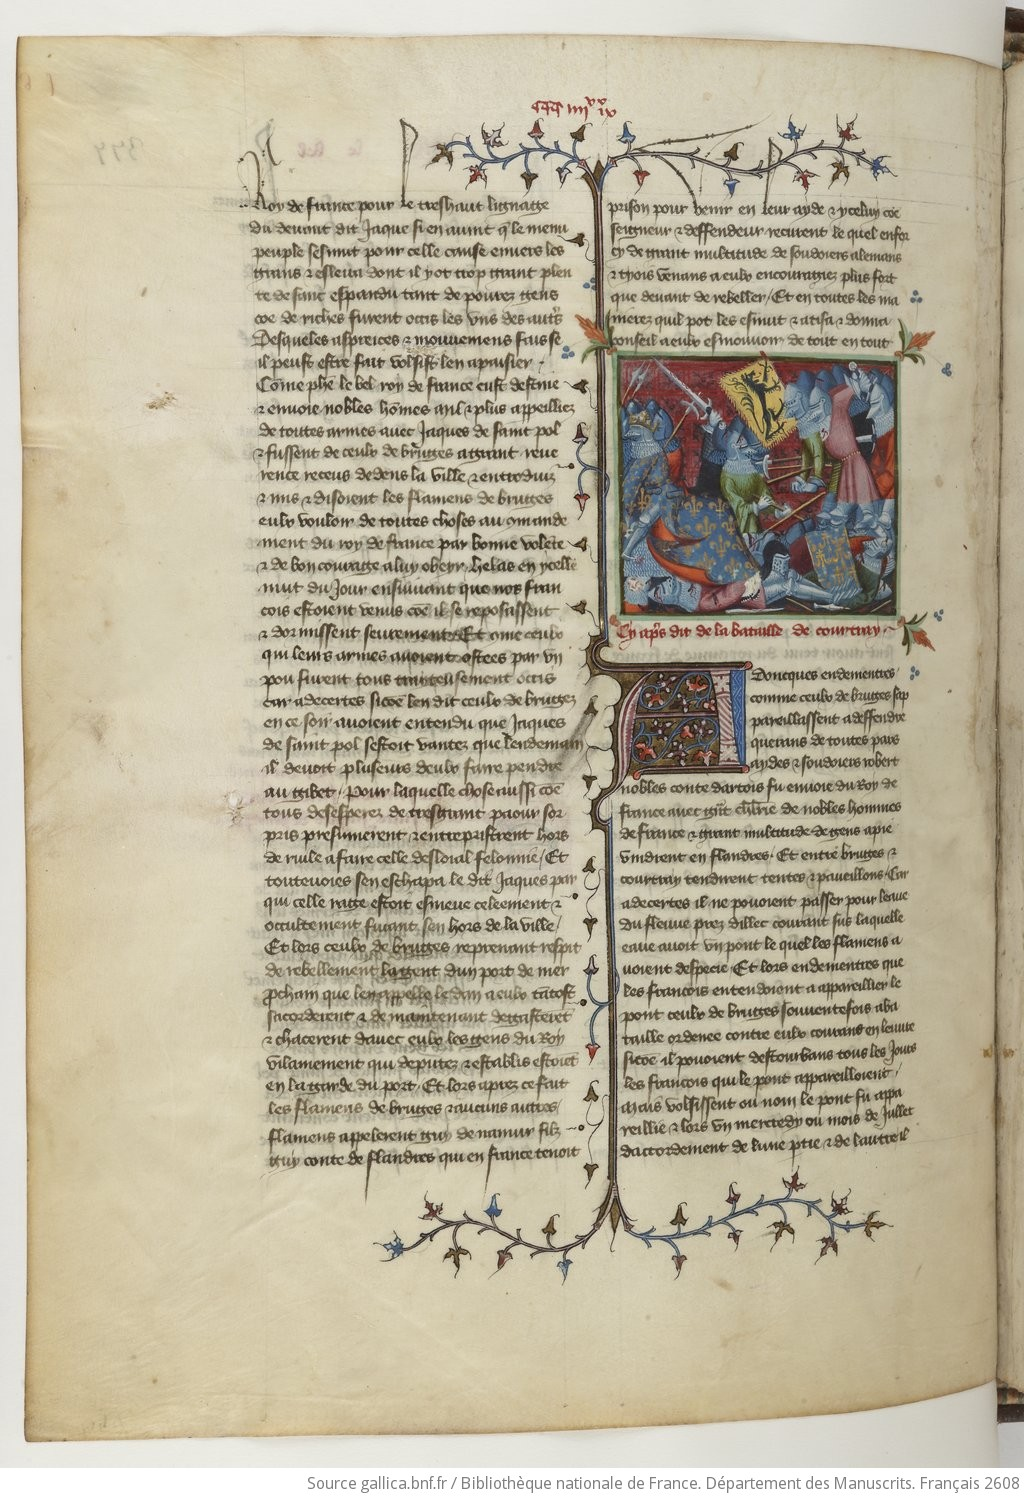 CCC IIII XX IX
Roy de france pour le treshaut lignaige
du devant dit Jaque si en avint q̃ le menu
peuple sesmut pour celle cause envers les
grans & esleva dont il y ot trop grant plen
te de sanc espandu tant de povrez gens
cõe de riches furent occis les uns des autrs
Desqueles aspreices & mouvemens faisse
il peust estre fait volsist len apaisier
Cõme phe le bel roy de france eust destine
& envoie nobles hõmes mil & plus appeilliez
de toutes armes avec Jaques de saint pol
& fussent de ceulx de bruges a grant reve
rence receus dedens la ville & entroduiz
& mis & disoient les flamens de bruges
eulx vouloir de toutes choses au cõmande
ment du roy de france par bonne volẽte
& de bon courage a luy obeyr helas en ycelle
nuit du Jour ensuivant que nos fran
cois estoient venus cõe il se reposassent
& dormissent seurement Et cõme ceulx
qui leurs armes avoient ostees par un
pou furent tous occis
Car adecertes sicõe len dit ceulx de bruges
en ce soir avoient entendu que Jaques
de saint pol sestoit vantez que lendemain
il devoit pluseurs deulx faire pendre
au gibet Pour laquelle chose aussi cõe
tous desesperez de tresgrant paour sor
pris presumerent & entrepristrent hors
de riule a faire celle desloial felonnie Et
toutevoies sen eschapa le dit Jaques par
qui celle rage estoit esmeue celeement &
occultement fuiant sen hors de la ville
Et lors ceulx de bruges reprenant respit
de rebellement la gent dun port de mer
prochain que len appelle le dan a eulx tãtost
sacorderent & de maintenant degasterẽt
& chacerent davec eulx les gens du Roy
vilainement qui deputez & establis estoiẽt
en la garde du port Et lors apres ce fait
les flamens de bruges & aucuns autres
flamens appelerent guy de namur filz
guy conte de flandres qui en france tenoit
prison pour venir en leur ayde & yceluy cõe
seigneur & deffendeur recurent le quel enfor
cy de grant multitude de soudoiers alemans
& thiois venans a eulx encouragiez plus fort
que devant de rebeller Et en toutes les ma
nierez quil pot les esmut & atisa & donna
conseil a eulx esmouvoir de tout en tout
Cy apñs dit de la bataille de courtray
A Doncques endementres
comme ceulx de bruges sap
pareillassent a deffendre
querans de toutes pars
aydes & soudoiers robert
nobles conte dartois fu envoie du Roy de
france avec grãt chlrie de nobles hommes
de france & grant multitude de gens a pie
vindrent en flandres Et entre bruges &
courtray tendirent tentes & paveillons Car
adecertes il ne povoient passer pour leaue
du fleuve prez dillec courant sus laquelle
eaue avoit un pont le quel les flamens a
voient despecie Et lors endementres que
les francois entendoient a appareillier le
pont ceulx de bruges souventefois a ba
taille ordenee contre eulx courans en leuvre
sicõe il povoient destourbans tous les Jours
les francois qui le pont appareilloient
Mais volsissent ou nom le pont fu appa
reillie & lors un mercredy ou mois de Juillet
dacordement de lune ptie & de lautre il
Source gallica.bnf.fr / Bibliothèque nationale de France. Département des Manuscrits. Français 2608